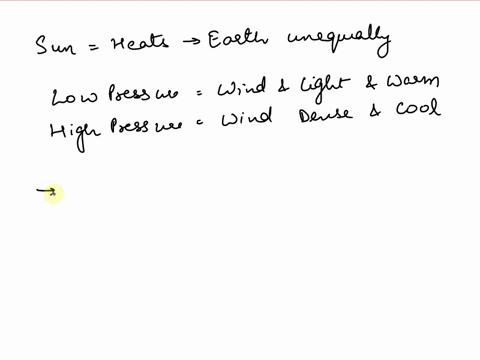 Sun = Heats → Earth unequally
Low Pressure = Wind & Light & Warm
High Pressure = Wind Dense & Cool
→